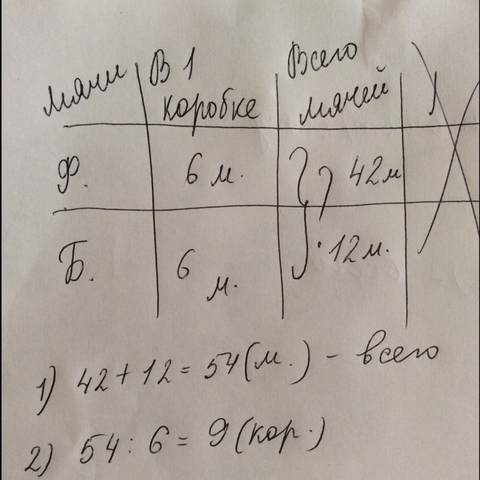 мячи В 1 коробке Всего мячей
Ф. 6 м. 42м
Б. 6 м. 12м.
1) 42 + 12 = 54 (м.) - всего
2) 54 : 6 = 9 (кор.)